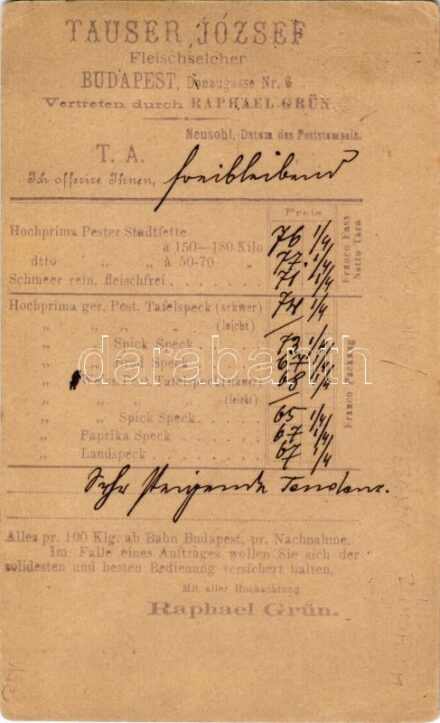 TAUSER JÓZSEF
Fleischselcher
BUDAPEST, Donaugasse Nr. 6
Vertreten durch RAPHAEL GRÜN.
Neusohl, Datum des Poststempels.
T. A.
Ich offerire Ihnen, freibleibend
Preis
Hochprima Pester Stadtfette
à 150—180 Kilo 76 1/4
ditto „ „ à 50-70 „ 77 1/4
Schmeer rein, fleischfrei 71 1/4
Franco Fass
Netto Tara
Hochprima ger. Pest. Tafelspeck (schwer) 74 1/4
„ „ „ „ (leicht)
„ Spick Speck 73 1/4
„ Speck 67 1/4
„ Tafelspeck (schwer) 68 1/4
„ „ „ „ (leicht)
„ Spick Speck 65 1/4
„ Paprika Speck 67 1/4
„ Landspeck 67 1/4
Franco Packung
Sehr steigende Tendenz.
Alles pr. 100 Klg. ab Bahn Budapest, pr. Nachnahme.
Im Falle eines Auftrages wollen Sie sich der
solidesten und besten Bedienung versichert halten.
Mit aller Hochachtung
Raphael Grün.
darabanth